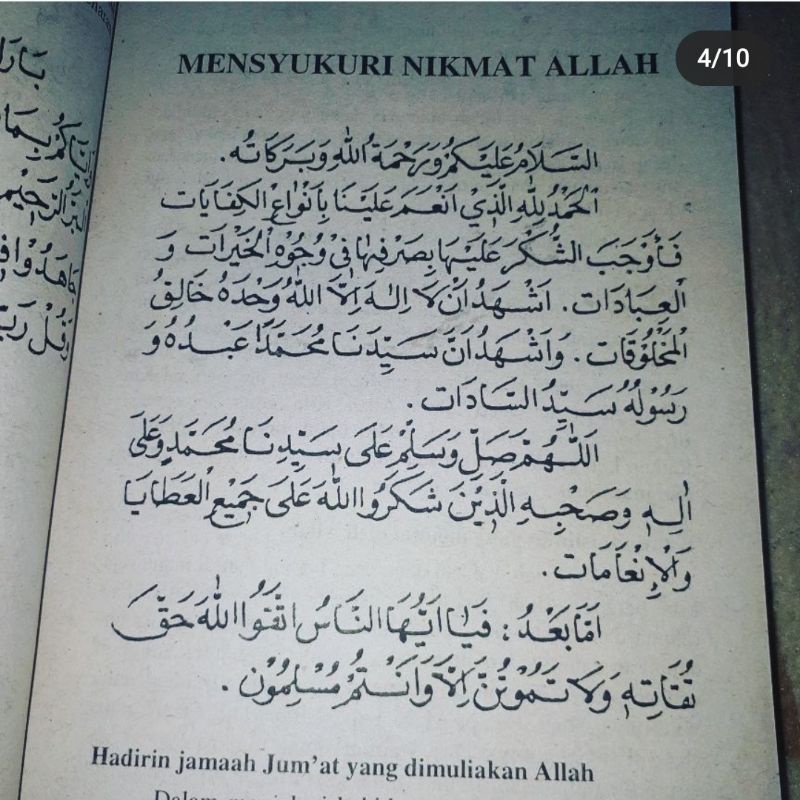 4/10
MENSYUKURI NIKMAT ALLAH
اَلسَّلَامُ عَلَيْكُمْ وَرَحْمَةُ اللهِ وَبَرَكَاتُهُ.
اَلْحَمْدُ لِلّٰهِ الَّذِيْ اَنْعَمَ عَلَيْنَا بِاَنْوَاعِ الْكِفَايَات
فَأَوْجَبَ الشُّكْرَ عَلَيْهَا بِصَرْفِهَا فِيْ وُجُوْهِ الْخَيْرَات وَ
الْعِبَادَات. اَشْهَدُ اَنْ لَا اِلٰهَ اِلَّا اللهُ وَحْدَهُ خَالِقُ
الْمَخْلُوْقَات. وَاَشْهَدُ اَنَّ سَيِّدَنَا مُحَمَّدًا عَبْدُهُ وَ
رَسُوْلُهُ سَيِّدُ السَّادَات.
اَللّٰهُمَّ صَلِّ وَسَلِّمْ عَلَى سَيِّدِنَا مُحَمَّدٍ وَعَلَى
اٰلِهِ وَصَحْبِهِ الَّذِيْنَ شَكَرُوا اللهَ عَلَى جَمِيْعِ الْعَطَايَا
وَالْاِنْعَامَات.
اَمَّا بَعْدُ: فَيَا اَيُّهَا النَّاسُ اتَّقُوا اللهَ حَقَّ
تُقَاتِهِ وَلَا تَمُوْتُنَّ اِلَّا وَاَنْتُمْ مُسْلِمُوْن.
Hadirin jamaah Jum'at yang dimuliakan Allah